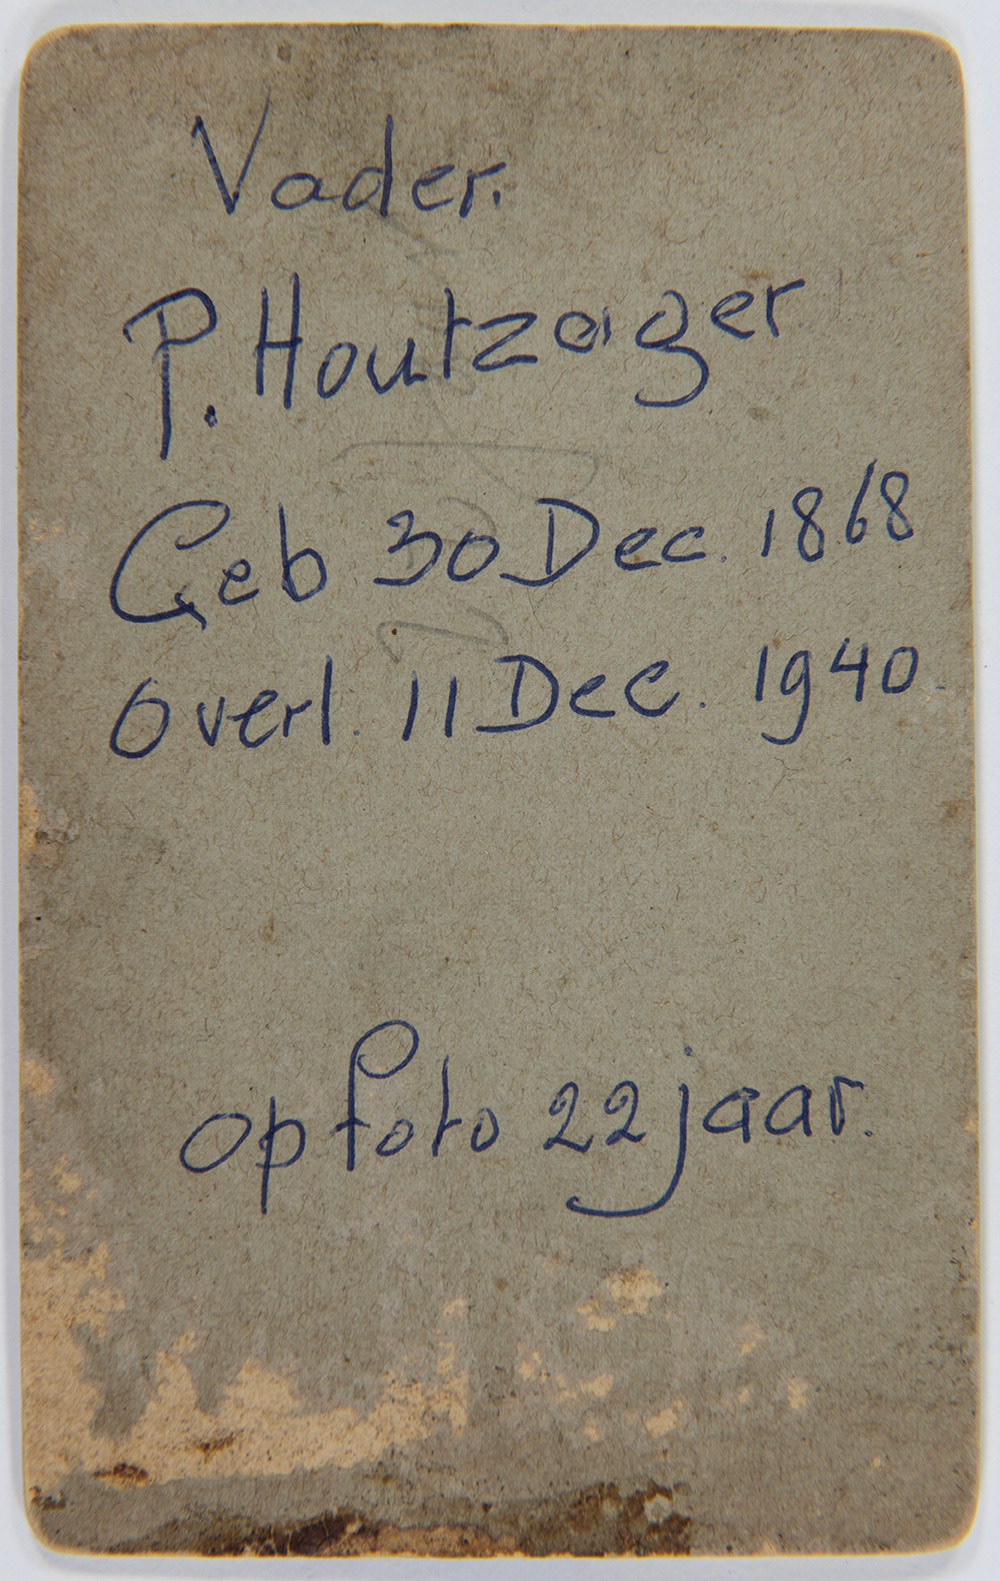 Vader.
P. Houtzager
Geb 30 Dec. 1868
Overl. 11 Dec. 1940.
op foto 22 jaar.